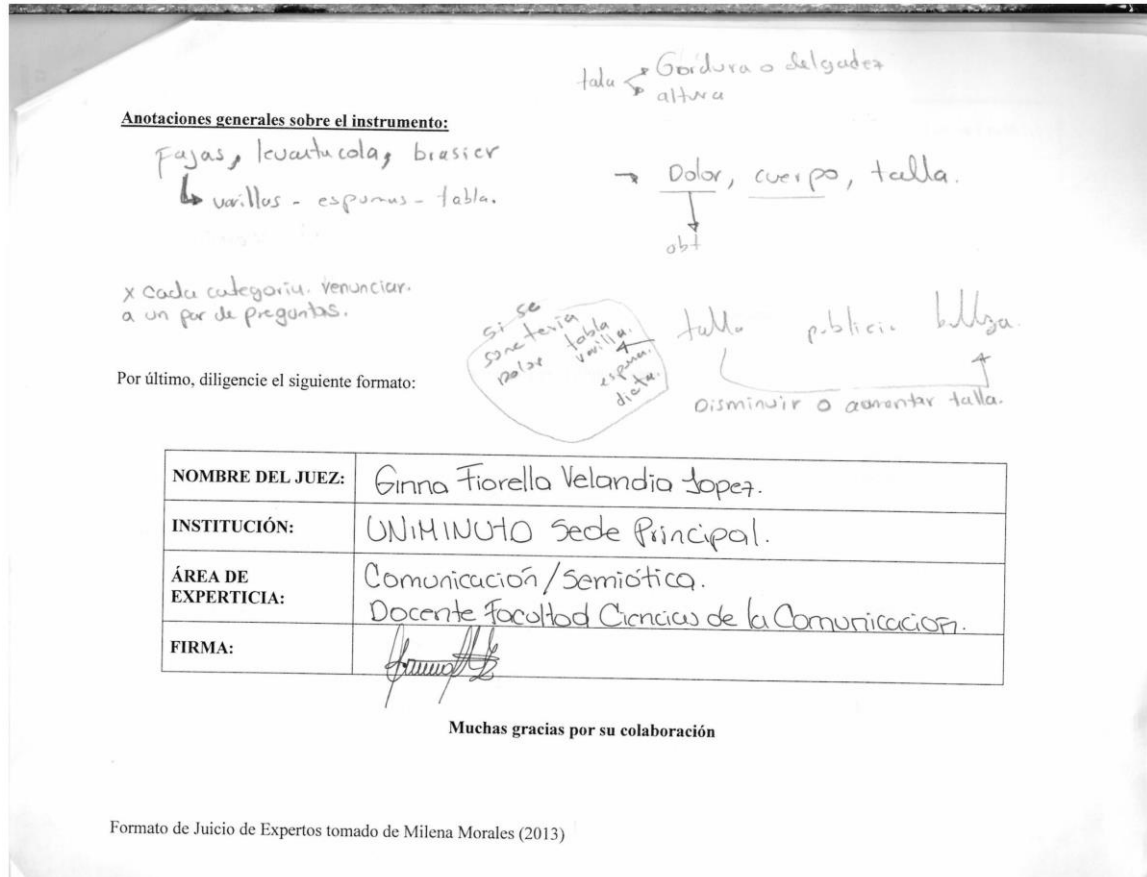 talla Gordura o delgadez
altura
Anotaciones generales sobre el instrumento:
Fajas, levantacola, brasier
varillas - espumas - tabla.
→ Dolor, cuerpo, talla.
obt
x cada categoria. renunciar.
a un par de preguntas.
si se
sometería tabla
Dolor varilla.
espuma.
dieta.
talla publici. belleza.
Disminuir o aumentar talla.
Por último, diligencie el siguiente formato:
NOMBRE DEL JUEZ: Ginna Fiorella Velandia Lopez.
INSTITUCIÓN: UNIMINUTO Sede Principal.
ÁREA DE EXPERTICIA: Comunicación/Semiótica.
Docente Facultad Ciencias de la Comunicación.
FIRMA:
Muchas gracias por su colaboración
Formato de Juicio de Expertos tomado de Milena Morales (2013)